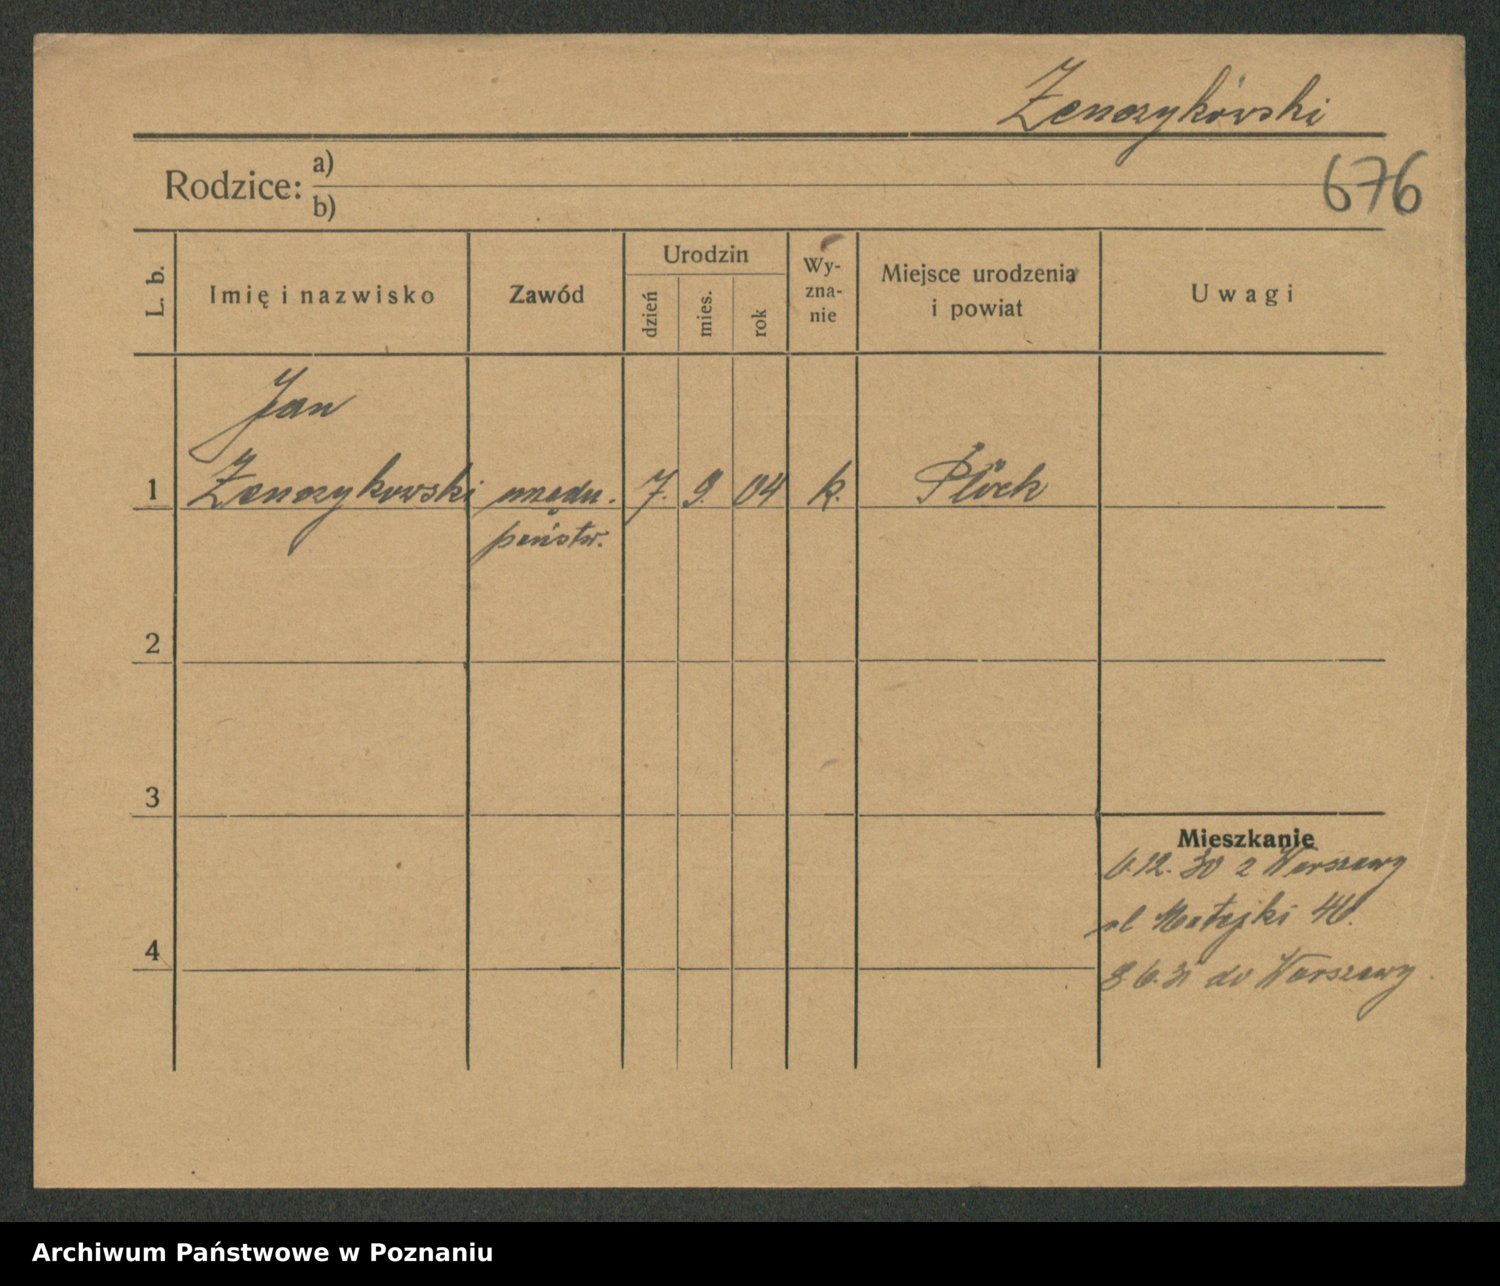 Zenczykowski
Rodzice: a)
b)
676
L. b.
Imię i nazwisko
Zawód
Urodzin
dzień
mies.
rok
Wy-
zna-
nie
Miejsce urodzenia
i powiat
Uwagi
Jan
1 Zenczykowski urzędn. 7. 9. 04 k. Płock
państw.
2
3
Mieszkanie
6.12.30 z Warszawy
ul Matejki
4
8.6.31 do Warszawy.
Archiwum Państwowe w Poznaniu